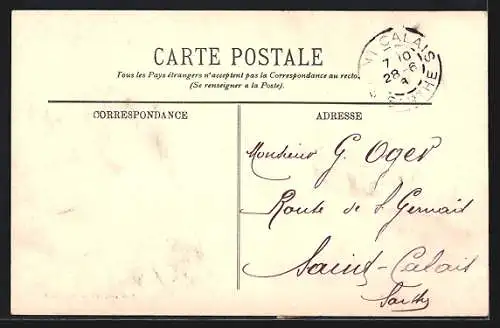 CARTE POSTALE
Tous les Pays étrangers n'acceptent pas la Correspondance au recto.
(Se renseigner a la Poste).
CALAIS
7 10
28-6
CORRESPONDANCE
ADRESSE
Monsieur G. Oger
Route de St Germain
Saint-Calais
Sarthe